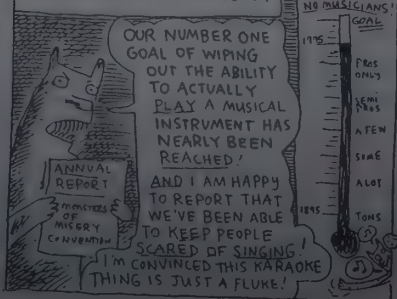 OUR NUMBER ONE
GOAL OF WIPING
OUT THE ABILITY
TO ACTUALLY
PLAY A MUSICAL
INSTRUMENT HAS
NEARLY BEEN
REACHED!
AND I AM HAPPY
TO REPORT THAT
WE'VE BEEN ABLE
TO KEEP PEOPLE
SCARED OF SINGING!
I'M CONVINCED THIS KARAOKE
THING IS JUST A FLUKE!
ANNUAL
REPORT
MONSTERS
OF
MISERY
CONVENTION
NO MUSICIANS!
GOAL
1995
PROS
ONLY
SEMI
PROS
A FEW
SOME
A LOT
1895
TONS